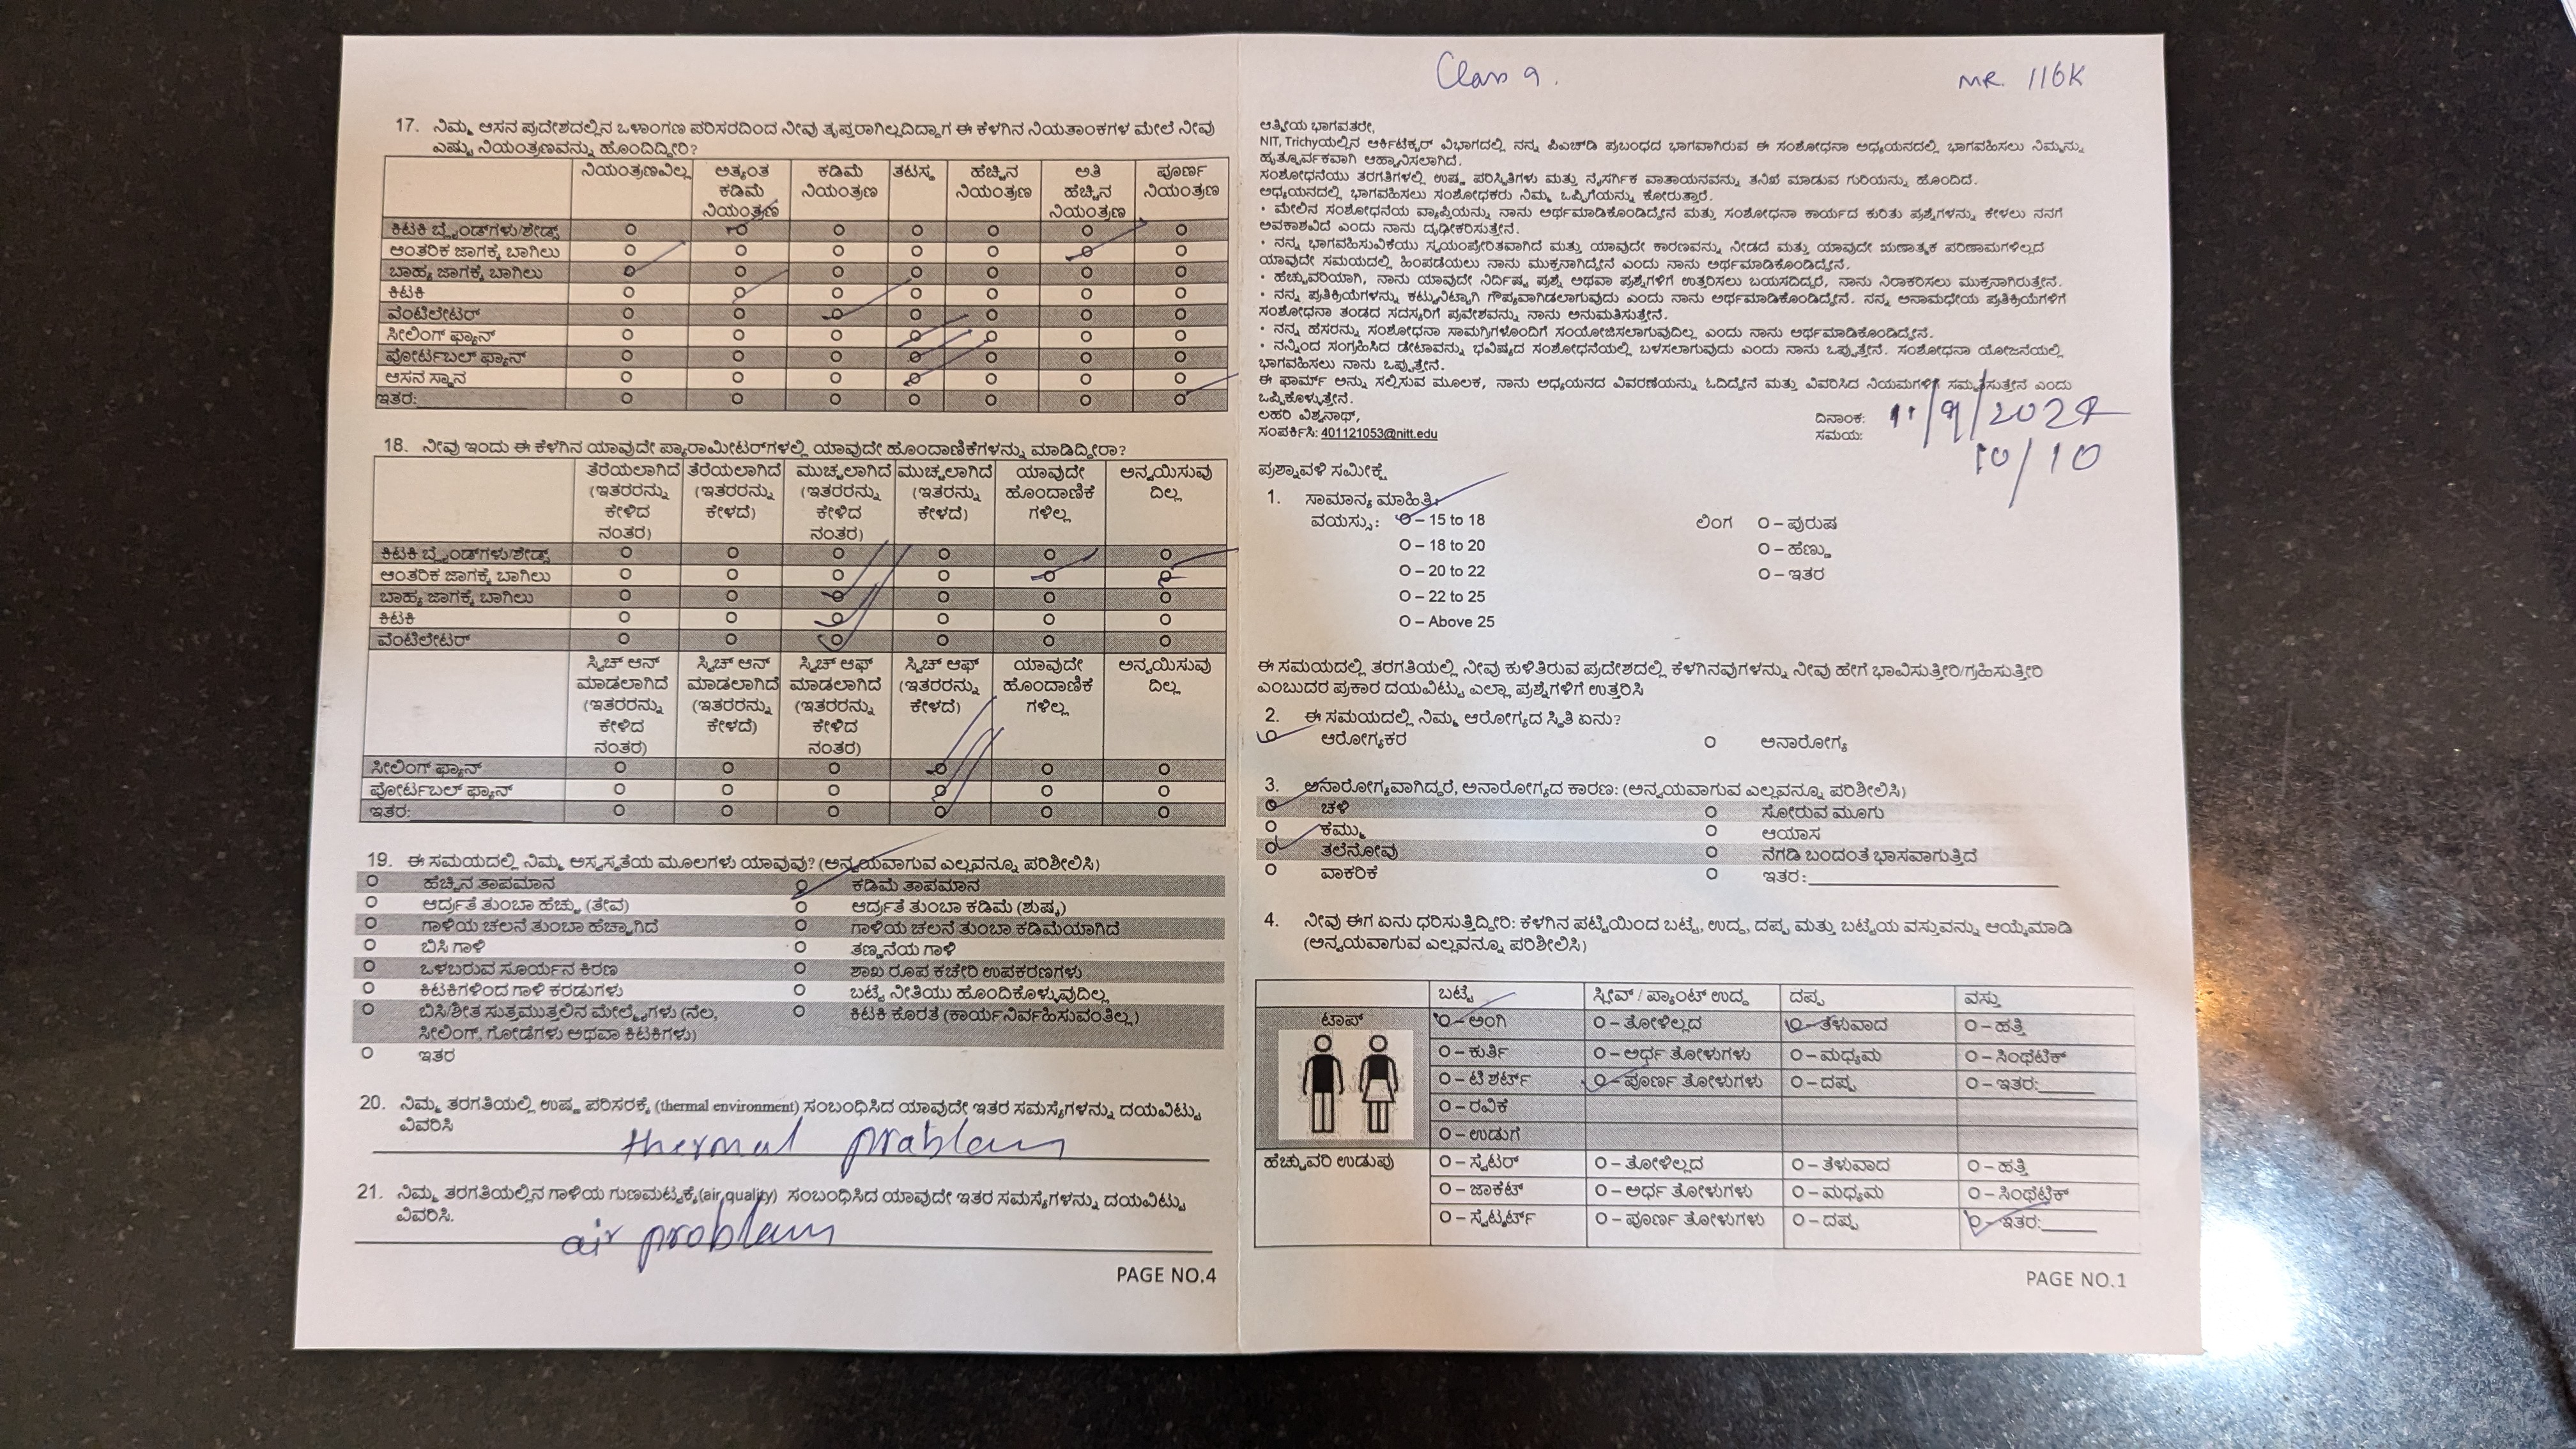 17. ನಿಮ್ಮ ಆಸನ ಪ್ರದೇಶದಲ್ಲಿನ ಒಳಾಂಗಣ ಪರಿಸರದಿಂದ ನೀವು ತೃಪ್ತರಾಗಿಲ್ಲದಿದ್ದಾಗ ಈ ಕೆಳಗಿನ ನಿಯತಾಂಕಗಳ ಮೇಲೆ ನೀವು
ಎಷ್ಟು ನಿಯಂತ್ರಣವನ್ನು ಹೊಂದಿದ್ದೀರಿ?
ನಿಯಂತ್ರಣವಿಲ್ಲ ಅತ್ಯಂತ ಕಡಿಮೆ ನಿಯಂತ್ರಣ ಕಡಿಮೆ ನಿಯಂತ್ರಣ ತಟಸ್ಥ ಹೆಚ್ಚಿನ ನಿಯಂತ್ರಣ ಅತಿ ಹೆಚ್ಚಿನ ನಿಯಂತ್ರಣ ಪೂರ್ಣ ನಿಯಂತ್ರಣ
ಕಿಟಕಿ ಬ್ಲೈಂಡ್‌ಗಳು/ಶೇಡ್ಸ್
ಆಂತರಿಕ ಜಾಗಕ್ಕೆ ಬಾಗಿಲು
ಬಾಹ್ಯ ಜಾಗಕ್ಕೆ ಬಾಗಿಲು
ಕಿಟಕಿ
ವೆಂಟಿಲೇಟರ್
ಸೀಲಿಂಗ್ ಫ್ಯಾನ್
ಪೋರ್ಟಬಲ್ ಫ್ಯಾನ್
ಆಸನ ಸ್ಥಾನ
ಇತರ:
18. ನೀವು ಇಂದು ಈ ಕೆಳಗಿನ ಯಾವುದೇ ಪ್ಯಾರಾಮೀಟರ್‌ಗಳಲ್ಲಿ ಯಾವುದೇ ಹೊಂದಾಣಿಕೆಗಳನ್ನು ಮಾಡಿದ್ದೀರಾ?
ತೆರೆಯಲಾಗಿದೆ (ಇತರರನ್ನು ಕೇಳಿದ ನಂತರ) ತೆರೆಯಲಾಗಿದೆ (ಇತರರನ್ನು ಕೇಳದೆ) ಮುಚ್ಚಲಾಗಿದೆ (ಇತರರನ್ನು ಕೇಳಿದ ನಂತರ) ಮುಚ್ಚಲಾಗಿದೆ (ಇತರರನ್ನು ಕೇಳದೆ) ಯಾವುದೇ ಹೊಂದಾಣಿಕೆ ಗಳಿಲ್ಲ ಅನ್ವಯಿಸುವು ದಿಲ್ಲ
ಕಿಟಕಿ ಬ್ಲೈಂಡ್‌ಗಳು/ಶೇಡ್ಸ್
ಆಂತರಿಕ ಜಾಗಕ್ಕೆ ಬಾಗಿಲು
ಬಾಹ್ಯ ಜಾಗಕ್ಕೆ ಬಾಗಿಲು
ಕಿಟಕಿ
ವೆಂಟಿಲೇಟರ್
ಸ್ವಿಚ್ ಆನ್ ಮಾಡಲಾಗಿದೆ (ಇತರರನ್ನು ಕೇಳಿದ ನಂತರ) ಸ್ವಿಚ್ ಆನ್ ಮಾಡಲಾಗಿದೆ (ಇತರರನ್ನು ಕೇಳದೆ) ಸ್ವಿಚ್ ಆಫ್ ಮಾಡಲಾಗಿದೆ (ಇತರರನ್ನು ಕೇಳಿದ ನಂತರ) ಸ್ವಿಚ್ ಆಫ್ (ಇತರರನ್ನು ಕೇಳದೆ) ಯಾವುದೇ ಹೊಂದಾಣಿಕೆ ಗಳಿಲ್ಲ ಅನ್ವಯಿಸುವು ದಿಲ್ಲ
ಸೀಲಿಂಗ್ ಫ್ಯಾನ್
ಪೋರ್ಟಬಲ್ ಫ್ಯಾನ್
ಇತರ:
19. ಈ ಸಮಯದಲ್ಲಿ ನಿಮ್ಮ ಅಸ್ವಸ್ಥತೆಯ ಮೂಲಗಳು ಯಾವುವು? (ಅನ್ವಯವಾಗುವ ಎಲ್ಲವನ್ನೂ ಪರಿಶೀಲಿಸಿ)
ಹೆಚ್ಚಿನ ತಾಪಮಾನ ಕಡಿಮೆ ತಾಪಮಾನ
ಆರ್ದ್ರತೆ ತುಂಬಾ ಹೆಚ್ಚು (ತೇವ) ಆರ್ದ್ರತೆ ತುಂಬಾ ಕಡಿಮೆ (ಶುಷ್ಕ)
ಗಾಳಿಯ ಚಲನೆ ತುಂಬಾ ಹೆಚ್ಚಾಗಿದೆ ಗಾಳಿಯ ಚಲನೆ ತುಂಬಾ ಕಡಿಮೆಯಾಗಿದೆ
ಬಿಸಿ ಗಾಳಿ ತಣ್ಣನೆಯ ಗಾಳಿ
ಒಳಬರುವ ಸೂರ್ಯನ ಕಿರಣ ಶಾಖ ರೂಪ ಕಚೇರಿ ಉಪಕರಣಗಳು
ಕಿಟಕಿಗಳಿಂದ ಗಾಳಿ ಕರಡುಗಳು ಬಟ್ಟೆ ನೀತಿಯು ಹೊಂದಿಕೊಳ್ಳುವುದಿಲ್ಲ
ಬಿಸಿ/ಶೀತ ಸುತ್ತಮುತ್ತಲಿನ ಮೇಲ್ಮೈಗಳು (ನೆಲ, ಕಿಟಕಿ ಕೊರತೆ (ಕಾರ್ಯನಿರ್ವಹಿಸುವಂತಿಲ್ಲ)
ಸೀಲಿಂಗ್, ಗೋಡೆಗಳು ಅಥವಾ ಕಿಟಕಿಗಳು)
ಇತರ
20. ನಿಮ್ಮ ತರಗತಿಯಲ್ಲಿ ಉಷ್ಣ ಪರಿಸರಕ್ಕೆ (thermal environment) ಸಂಬಂಧಿಸಿದ ಯಾವುದೇ ಇತರ ಸಮಸ್ಯೆಗಳನ್ನು ದಯವಿಟ್ಟು
ವಿವರಿಸಿ
thermal problem
21. ನಿಮ್ಮ ತರಗತಿಯಲ್ಲಿನ ಗಾಳಿಯ ಗುಣಮಟ್ಟಕ್ಕೆ(air quality) ಸಂಬಂಧಿಸಿದ ಯಾವುದೇ ಇತರ ಸಮಸ್ಯೆಗಳನ್ನು ದಯವಿಟ್ಟು
ವಿವರಿಸಿ.
air problem
PAGE NO.4
Class 9. MR. 116K
ಆತ್ಮೀಯ ಭಾಗವತರೇ,
NIT, Trichyಯಲ್ಲಿನ ಆರ್ಕಿಟೆಕ್ಚರ್ ವಿಭಾಗದಲ್ಲಿ ನನ್ನ ಪಿಎಚ್‌ಡಿ ಪ್ರಬಂಧದ ಭಾಗವಾಗಿರುವ ಈ ಸಂಶೋಧನಾ ಅಧ್ಯಯನದಲ್ಲಿ ಭಾಗವಹಿಸಲು ನಿಮ್ಮನ್ನು
ಹೃತ್ಪೂರ್ವಕವಾಗಿ ಆಹ್ವಾನಿಸಲಾಗಿದೆ.
ಸಂಶೋಧನೆಯು ತರಗತಿಗಳಲ್ಲಿ ಉಷ್ಣ ಪರಿಸ್ಥಿತಿಗಳು ಮತ್ತು ನೈಸರ್ಗಿಕ ವಾತಾಯನವನ್ನು ತನಿಖೆ ಮಾಡುವ ಗುರಿಯನ್ನು ಹೊಂದಿದೆ.
ಅಧ್ಯಯನದಲ್ಲಿ ಭಾಗವಹಿಸಲು ಸಂಶೋಧಕರು ನಿಮ್ಮ ಒಪ್ಪಿಗೆಯನ್ನು ಕೋರುತ್ತಾರೆ.
• ಮೇಲಿನ ಸಂಶೋಧನೆಯ ವ್ಯಾಪ್ತಿಯನ್ನು ನಾನು ಅರ್ಥಮಾಡಿಕೊಂಡಿದ್ದೇನೆ ಮತ್ತು ಸಂಶೋಧನಾ ಕಾರ್ಯದ ಕುರಿತು ಪ್ರಶ್ನೆಗಳನ್ನು ಕೇಳಲು ನನಗೆ
ಅವಕಾಶವಿದೆ ಎಂದು ನಾನು ದೃಢೀಕರಿಸುತ್ತೇನೆ.
• ನನ್ನ ಭಾಗವಹಿಸುವಿಕೆಯು ಸ್ವಯಂಪ್ರೇರಿತವಾಗಿದೆ ಮತ್ತು ಯಾವುದೇ ಕಾರಣವನ್ನು ನೀಡದೆ ಮತ್ತು ಯಾವುದೇ ಋಣಾತ್ಮಕ ಪರಿಣಾಮಗಳಿಲ್ಲದೆ
ಯಾವುದೇ ಸಮಯದಲ್ಲಿ ಹಿಂಪಡೆಯಲು ನಾನು ಮುಕ್ತನಾಗಿದ್ದೇನೆ ಎಂದು ನಾನು ಅರ್ಥಮಾಡಿಕೊಂಡಿದ್ದೇನೆ.
• ಹೆಚ್ಚುವರಿಯಾಗಿ, ನಾನು ಯಾವುದೇ ನಿರ್ದಿಷ್ಟ ಪ್ರಶ್ನೆ ಅಥವಾ ಪ್ರಶ್ನೆಗಳಿಗೆ ಉತ್ತರಿಸಲು ಬಯಸದಿದ್ದರೆ, ನಾನು ನಿರಾಕರಿಸಲು ಮುಕ್ತನಾಗಿರುತ್ತೇನೆ.
• ನನ್ನ ಪ್ರತಿಕ್ರಿಯೆಗಳನ್ನು ಕಟ್ಟುನಿಟ್ಟಾಗಿ ಗೌಪ್ಯವಾಗಿಡಲಾಗುವುದು ಎಂದು ನಾನು ಅರ್ಥಮಾಡಿಕೊಂಡಿದ್ದೇನೆ. ನನ್ನ ಅನಾಮಧೇಯ ಪ್ರತಿಕ್ರಿಯೆಗಳಿಗೆ
ಸಂಶೋಧನಾ ತಂಡದ ಸದಸ್ಯರಿಗೆ ಪ್ರವೇಶವನ್ನು ನಾನು ಅನುಮತಿಸುತ್ತೇನೆ.
• ನನ್ನ ಹೆಸರನ್ನು ಸಂಶೋಧನಾ ಸಾಮಗ್ರಿಗಳೊಂದಿಗೆ ಸಂಯೋಜಿಸಲಾಗುವುದಿಲ್ಲ ಎಂದು ನಾನು ಅರ್ಥಮಾಡಿಕೊಂಡಿದ್ದೇನೆ.
• ನನ್ನಿಂದ ಸಂಗ್ರಹಿಸಿದ ಡೇಟಾವನ್ನು ಭವಿಷ್ಯದ ಸಂಶೋಧನೆಯಲ್ಲಿ ಬಳಸಲಾಗುವುದು ಎಂದು ನಾನು ಒಪ್ಪುತ್ತೇನೆ. ಸಂಶೋಧನಾ ಯೋಜನೆಯಲ್ಲಿ
ಭಾಗವಹಿಸಲು ನಾನು ಒಪ್ಪುತ್ತೇನೆ.
ಈ ಫಾರ್ಮ್ ಅನ್ನು ಸಲ್ಲಿಸುವ ಮೂಲಕ, ನಾನು ಅಧ್ಯಯನದ ವಿವರಣೆಯನ್ನು ಓದಿದ್ದೇನೆ ಮತ್ತು ವಿವರಿಸಿದ ನಿಯಮಗಳಿಗೆ ಸಮ್ಮತಿಸುತ್ತೇನೆ ಎಂದು
ಒಪ್ಪಿಕೊಳ್ಳುತ್ತೇನೆ.
ಲಹರಿ ವಿಶ್ವನಾಥ್,
ಸಂಪರ್ಕಿಸಿ: 401121053@nitt.edu
ದಿನಾಂಕ: 11/9/2024
ಸಮಯ: 10/10
ಪ್ರಶ್ನಾವಳಿ ಸಮೀಕ್ಷೆ
1. ಸಾಮಾನ್ಯ ಮಾಹಿತಿ:
ವಯಸ್ಸು: O – 15 to 18 ಲಿಂಗ O – ಪುರುಷ
O – 18 to 20 O – ಹೆಣ್ಣು
O – 20 to 22 O – ಇತರ
O – 22 to 25
O – Above 25
ಈ ಸಮಯದಲ್ಲಿ ತರಗತಿಯಲ್ಲಿ ನೀವು ಕುಳಿತಿರುವ ಪ್ರದೇಶದಲ್ಲಿ ಕೆಳಗಿನವುಗಳನ್ನು ನೀವು ಹೇಗೆ ಭಾವಿಸುತ್ತೀರಿ/ಗ್ರಹಿಸುತ್ತೀರಿ
ಎಂಬುದರ ಪ್ರಕಾರ ದಯವಿಟ್ಟು ಎಲ್ಲಾ ಪ್ರಶ್ನೆಗಳಿಗೆ ಉತ್ತರಿಸಿ
2. ಈ ಸಮಯದಲ್ಲಿ ನಿಮ್ಮ ಆರೋಗ್ಯದ ಸ್ಥಿತಿ ಏನು?
ಆರೋಗ್ಯಕರ O ಅನಾರೋಗ್ಯ
3. ಅನಾರೋಗ್ಯವಾಗಿದ್ದರೆ, ಅನಾರೋಗ್ಯದ ಕಾರಣ: (ಅನ್ವಯವಾಗುವ ಎಲ್ಲವನ್ನೂ ಪರಿಶೀಲಿಸಿ)
ಚಳಿ ಸೋರುವ ಮೂಗು
ಕೆಮ್ಮು ಆಯಾಸ
ತಲೆನೋವು ನೆಗಡಿ ಬಂದಂತೆ ಭಾಸವಾಗುತ್ತಿದೆ
ವಾಕರಿಕೆ ಇತರ:
4. ನೀವು ಈಗ ಏನು ಧರಿಸುತ್ತಿದ್ದೀರಿ: ಕೆಳಗಿನ ಪಟ್ಟಿಯಿಂದ ಬಟ್ಟೆ, ಉದ್ದ, ದಪ್ಪ ಮತ್ತು ಬಟ್ಟೆಯ ವಸ್ತುವನ್ನು ಆಯ್ಕೆಮಾಡಿ
(ಅನ್ವಯವಾಗುವ ಎಲ್ಲವನ್ನೂ ಪರಿಶೀಲಿಸಿ)
ಬಟ್ಟೆ ಸ್ಲೀವ್ / ಪ್ಯಾಂಟ್ ಉದ್ದ ದಪ್ಪ ವಸ್ತು
ಟಾಪ್ O – ಅಂಗಿ O – ತೋಳಿಲ್ಲದ O – ತೆಳುವಾದ O – ಹತ್ತಿ
O – ಕುರ್ತಿ O – ಅರ್ಧ ತೋಳುಗಳು O – ಮಧ್ಯಮ O – ಸಿಂಥೆಟಿಕ್
O – ಟಿ ಶರ್ಟ್ O – ಪೂರ್ಣ ತೋಳುಗಳು O – ದಪ್ಪ O – ಇತರ:
O – ರವಿಕೆ
O – ಉಡುಗೆ
ಹೆಚ್ಚುವರಿ ಉಡುಪು O – ಸ್ವೆಟರ್ O – ತೋಳಿಲ್ಲದ O – ತೆಳುವಾದ O – ಹತ್ತಿ
O – ಜಾಕೆಟ್ O – ಅರ್ಧ ತೋಳುಗಳು O – ಮಧ್ಯಮ O – ಸಿಂಥೆಟ್ರಿಕ್
O – ಸ್ವೆಟ್ಶರ್ಟ್ O – ಪೂರ್ಣ ತೋಳುಗಳು O – ದಪ್ಪ O – ಇತರ:
PAGE NO.1